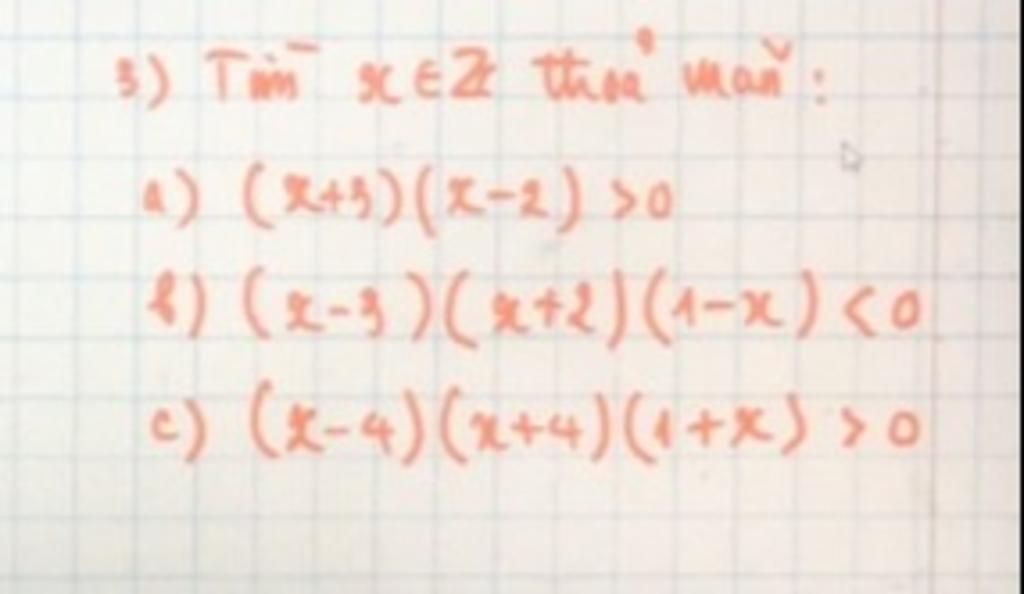 3) Tìm x ∈ ℤ thoả mãn :
a) (x+3)(x-2) >0
b) (x-3)(x+2)(1-x) < 0
c) (x-4)(x+4)(1+x) > 0